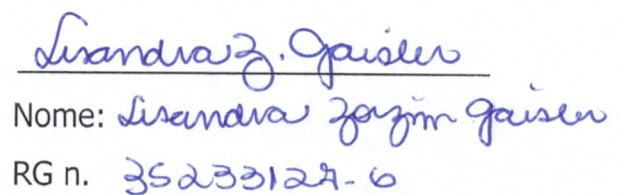 Lisandra Z. Gaisler
Nome: Lisandra Zorzim Gaisler
RG n. 35233127-6